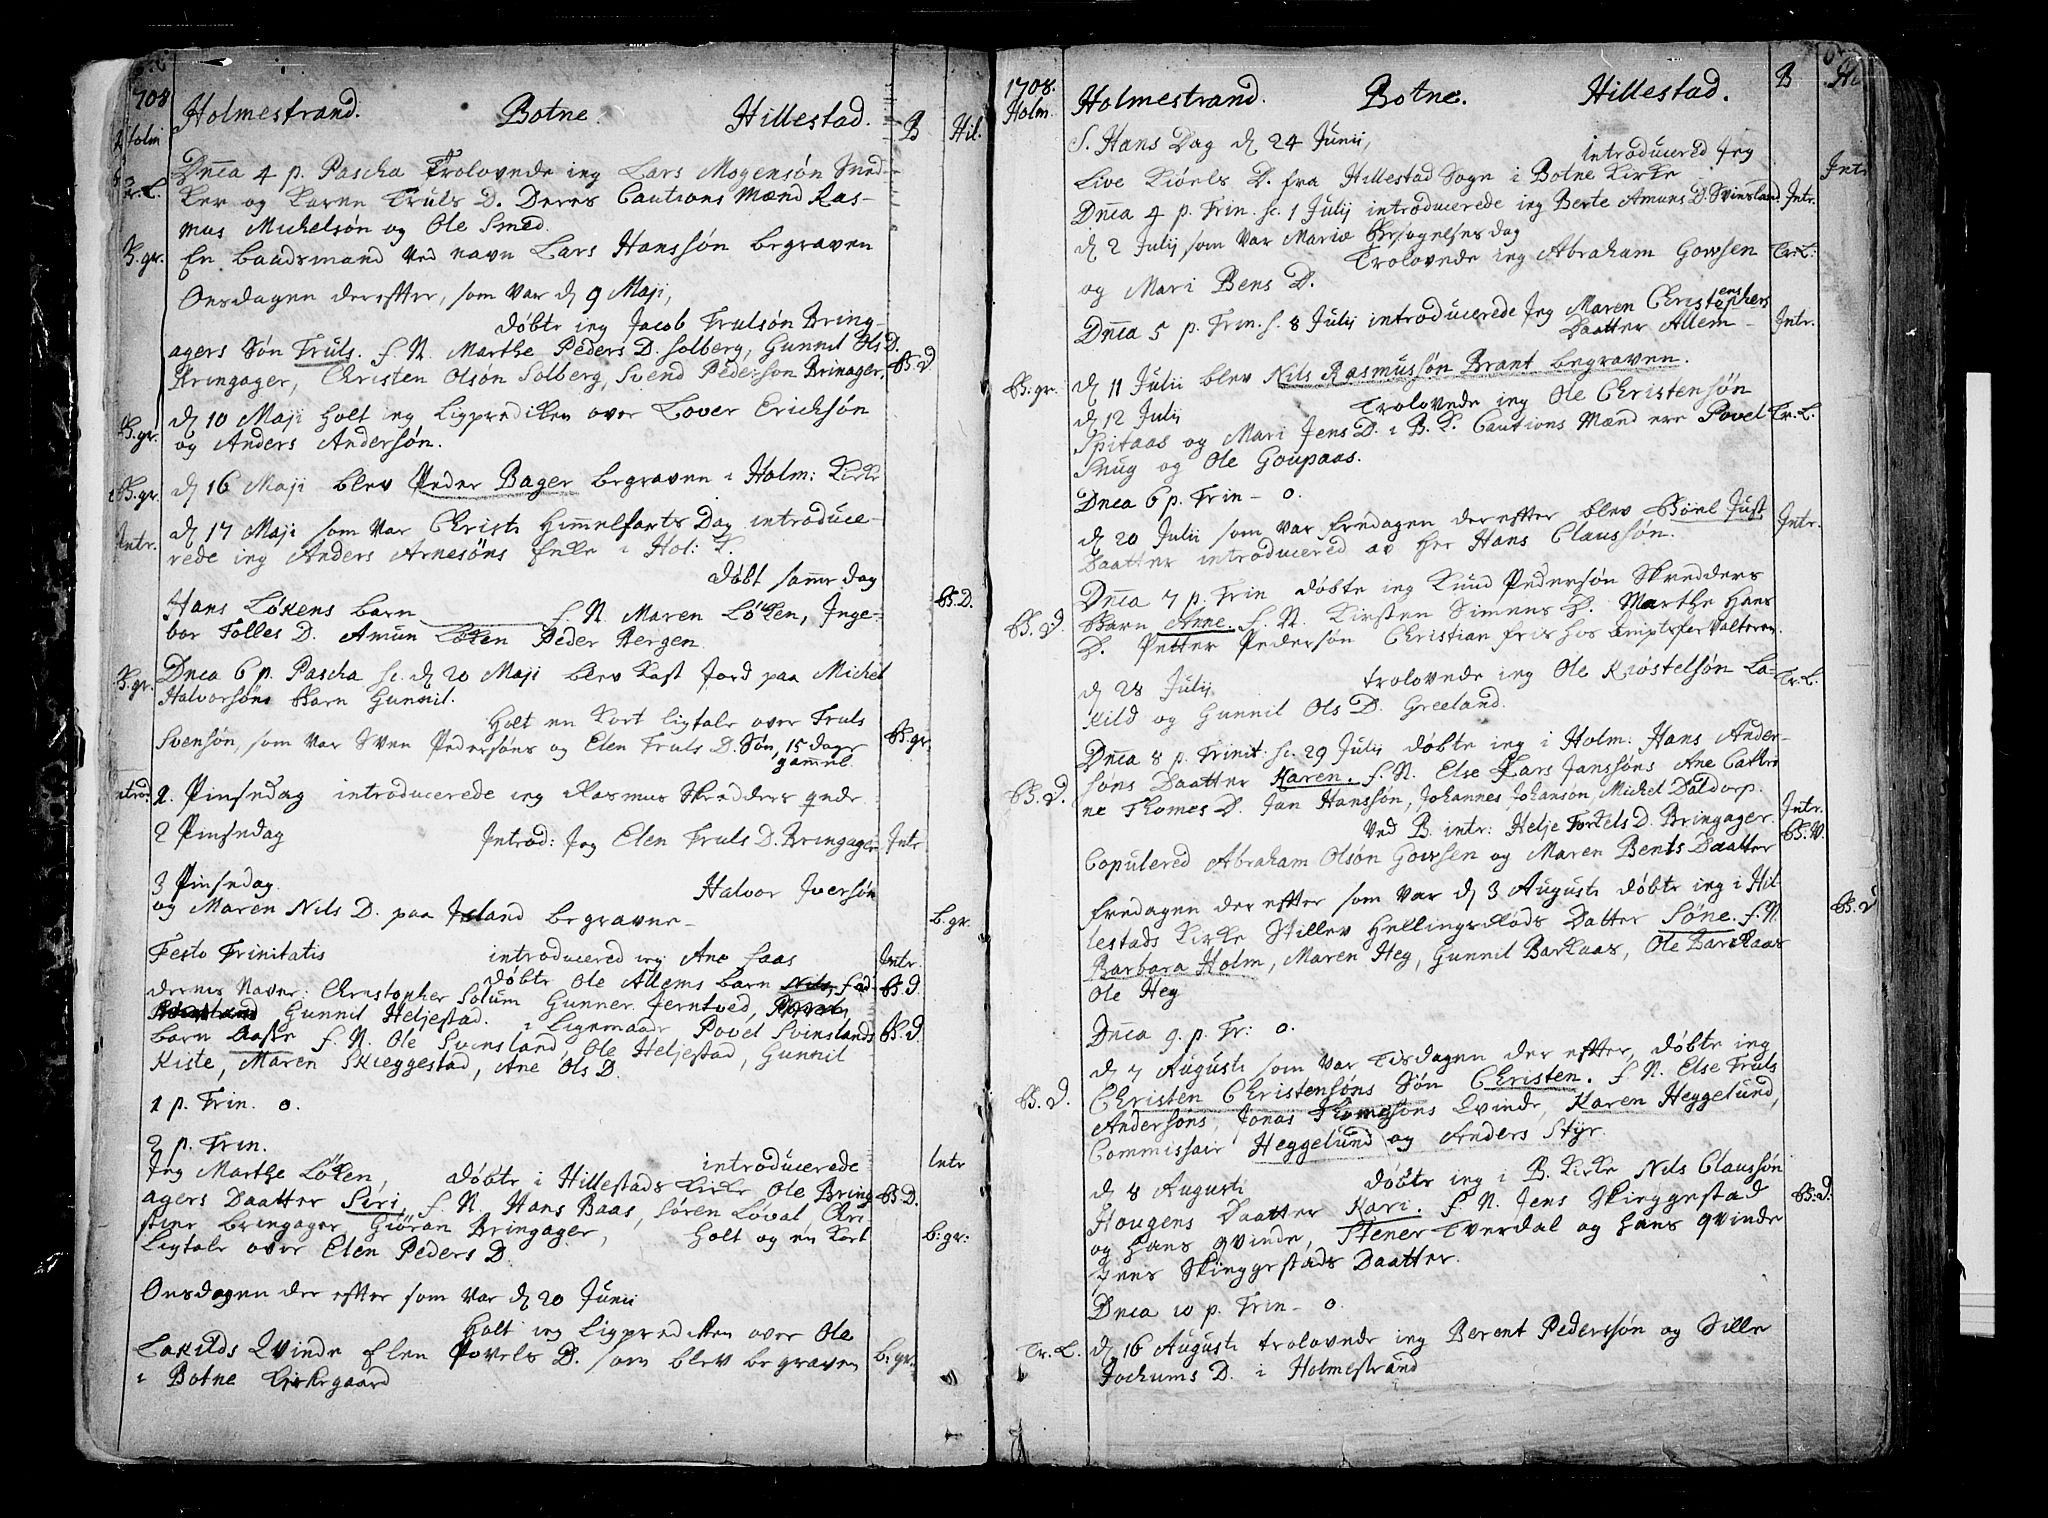 1708
Holmestrand. Botne. Hillestad. B Hil.
Holm
Dnca 4 p. Pascha Trolovede ieg Lars Mogensøn Sned-
Tr. L. ker og Karen Truls D. Deres Cautions Mænd Ras-
mus Michelsøn og Ole Smed.
B.gr. En baadsmand ved navn Lars Hanssøn begraven
Onsdagen derefter, som var d 9 Maji,
døbte ieg Jacob Trulsøn Bring-
agers Søn Truls. f. N. Marthe Peders D. Solberg, Gunnil Ols D.
Bringager, Christen Olsøn Solberg, Svend Pedersøn Bringager. B. D
d 10 Maji holt ieg Ligprediken over Lover Ericksøn
B.gr. og Anders Andersøn.
B.gr. d 16 Maji blev Peder Bager begraven i Holm: Kirke
d 17 Maji som var Christi Himmelfarts Dag introduce-
Intr. rede ieg Anders Arnesøns Enke i Hol: K.
døbt samme dag
Hans Løkens barn f. N. Maren Løken, Inge- B. D.
bor Tolles D. Amun Løken Peder Bergen
Dnca 6 p. Pascha sc. d 20 Maji blev kast Jord paa Michel
B.gr. Halvorsøns Barn Gunnil.
Holt en kort ligtale over Truls
Svensøn, som var Sven Pedersøns og Elen Truls D. Søn, 15 dage B.gr.
gammel.
Introd: 2. Pinsedag introducerede ieg Rasmus Skredders qvde
2 Pinsedag Introd: Jeg Elen Truls D. Bringager Intr
3 Pinsedag Halvor Iversøn
og Maren Nils D. paa Island begravne - b.gr.
Festo Trinitatis introducered ieg Ane Saas Intr.
døbte Ole Allems barn Nils, fad- B. D.
dernes Navne: Christopher Solum Gunner Jerntved,
Gunnil Heljestad. i Ligemaade Povel Svinslands B. D
barn Aase f. N. Ole Svinsland, Ole Heljestad, Gunnil
Kiste, Maren Skieggestad, Ane Ols D.
1 p. Trin. o.
2 p. Trin. introducerede
Jeg Marthe Løken, døbte i Hillestads Kirke Ole Bring Intr
agers Daatter Siri f. N. Hans Baas, Søren Løval Chri B. D.
stine Bringager, Giøran Bringager, Holt og en kort
Ligtale over Elen Peders D. b:gr:
Onsdagen der efter som var d 20 Junii
Holt ieg Ligprediken over Ole
Lakilds Qvinde Elen Povels D. som blev begraven b.gr.
i Botne Kirkegaard
1708.
Holm. Holmestrand. Botne. Hillestad. B Hil
S. Hans Dag d 24 Junii,
introducered Jeg
Live Kiøels D. fra Hillestad Sogn i Botne Kirke Intr
Dnca 4 p. Trin. sc. 1 Julij introducerede ieg Berte Amuns D. Svinsland Intr.
d 2 Julij som var Mariæ Besøgelses dag
Trolovede ieg Abraham Gowsen Tr. L:
og Mari Bens D.
Dnca 5 p. Trin. s. 8 Julij introducerede Jeg Maren Christophers
Daatter Allem - Intr.
B. gr. d 11 Julii blev Nils Rasmussøn Brant begraven.
d 12 Julij Trolovede ieg Ole Christensøn
Spitaas og Mari Jens D. i B. K. Cautions Mænd ere Povel Tr. L.
Snug og Ole Goupaas.
Dnca 6 p. Trin - o.
d 20 Julij som var fredagen derefter blev Boel Just Intr.
Daatter introducered av Her Hans Claussøn.
Dnca 7 p. Trin døbte ieg Knud Pedersøn Skredders
B. D. Barn Anne. f. N. Kirsten Simens D. Marthe Hans
D. Petter Pedersøn Christian Friis hos Amptsforvalteren.
d 28 Julij trolovede ieg Ole Kiøstelsøn La- Tr. L.
kild og Gunnil Ols D. Greeland.
Dnca 8 p. Trinit: sc. 29 Julij døbte ieg i Holm: Hans Ander-
B. D. søns Daatter Karen. f. N. Else Lars Janssøns Ane Cathri
ne Thomes D. Jan Hanssøn, Johannes Johansøn, Michel Daldorp.
Ved B. intr: Helje Tortels D. Bringager. Intr.
Copulered Abraham Olsøn Gowsen og Maren Bents Daatter B. V.
fredagen der efter som var d 3 Augusti døbte ieg i Hil-
lestads Kirke Stillev Hellingsrøds Datter Søne. f. N. B. D
Barbara Holm, Maren Heg, Gunnil Barkaas, Ole Barkaas
Ole Heg
Dnca 9. p. Tr: o.
d 7 Augusti som var Tisdagen der efter, døbte ieg
B. D. Christen Christensøns Søn Christen. f. N. Else Truls
Andersøns, Jonas Thomessøns Qvinde, Karen Heggelund,
Commissair Heggelund og Anders Styr.
d 8 Augusti døbte ieg i B. Kirke Nils Claussøn
Hougens Daatter Kari. f. N. Jens Skieggestad B. D.
og hans qvinde, Stener Tverdal og hans qvinde
Jens Skieggestads Daatter.
Dnca 10 p. Trin - o.
Tr. L. d 16 Augusti trolovede ieg Berent Pederssøn og Sille
Jochums D. i Holmestrand